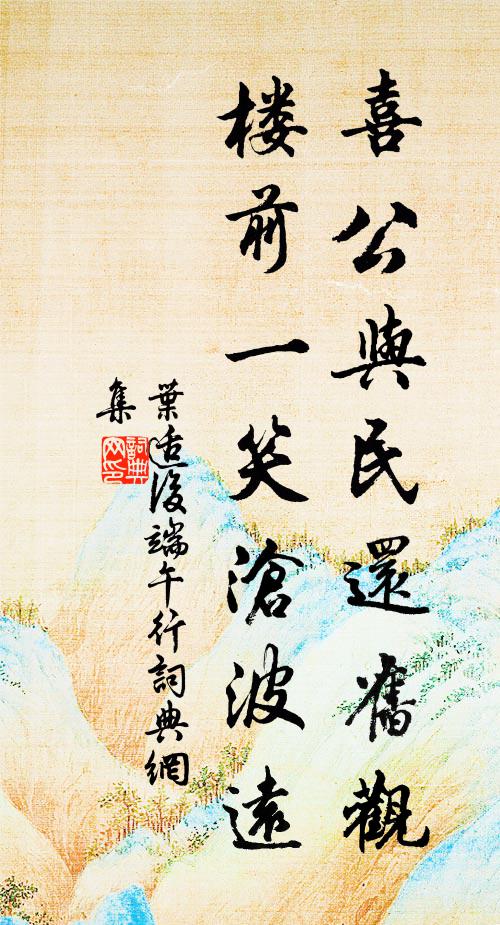 喜公與民還舊觀
楼前一笑滄波遠
葉适後端午行詞典網
集
詞典網印